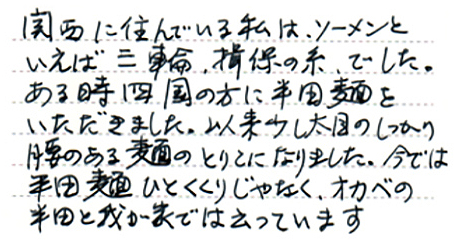 関西に住んでいる私は、ソーメンと
いえば三輪、揖保の糸、でした。
ある時四国の方に半田麺を
いただきました。以来少し太目のしっかり
腰のある麺のとりこになりました。今では
半田麺ひとくくりじゃなく、オカベの
半田と我か家では云っています